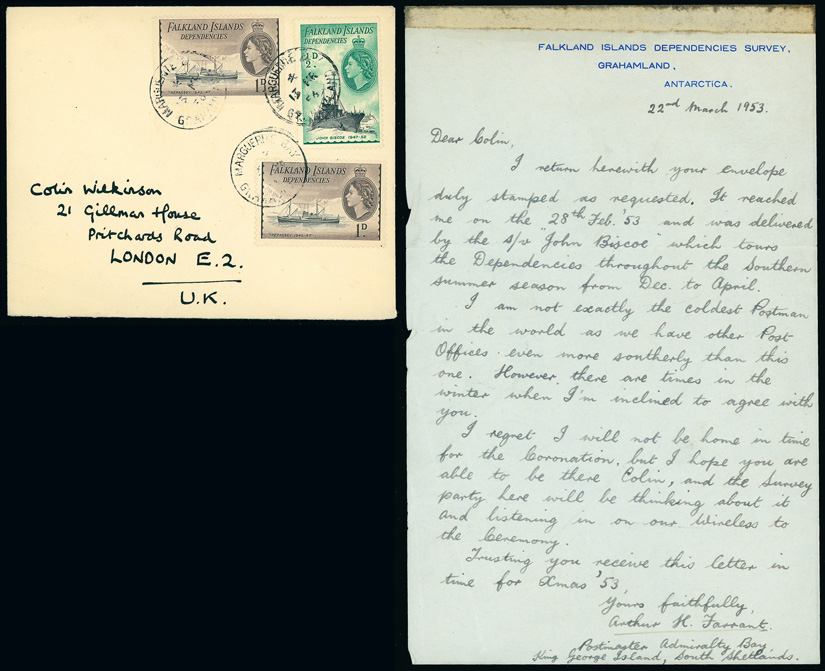 FALKLAND ISLANDS
DEPENDENCIES
1D
FALKLAND ISLANDS
DEPENDENCIES
JOHN BISCOE 1947-52
MARGUERITE
MARGUERITE
MARGUERITE BAY
FALKLAND ISLANDS
DEPENDENCIES
1D
Colin Wilkinson
21 Gillman House
Pritchards Road
LONDON E.2.
U.K.
FALKLAND ISLANDS DEPENDENCIES SURVEY,
GRAHAMLAND,
ANTARCTICA.
22nd March 1953.
Dear Colin,
I return herewith your envelope
duly stamped as requested. It reached
me on the "28th Feb. '53 and was delivered
by the s/v "John Biscoe" which tours
the Dependencies throughout the Southern
summer season from Dec. to April.
I am not exactly the coldest Postman
in the world as we have other Post
Offices even more southerly than this
one. However, there are times in the
winter when I'm inclined to agree with
you.
I regret I will not be home in time
for the Coronation, but I hope you are
able to be there Colin, and the Survey
party here will be thinking about it
and listening in on our Wireless to
the Ceremony.
Trusting you receive this letter in
time for Xmas '53,
Yours faithfully,
Arthur H. Farrant.
Postmaster Admiralty Bay
King George Island, South Shetlands.